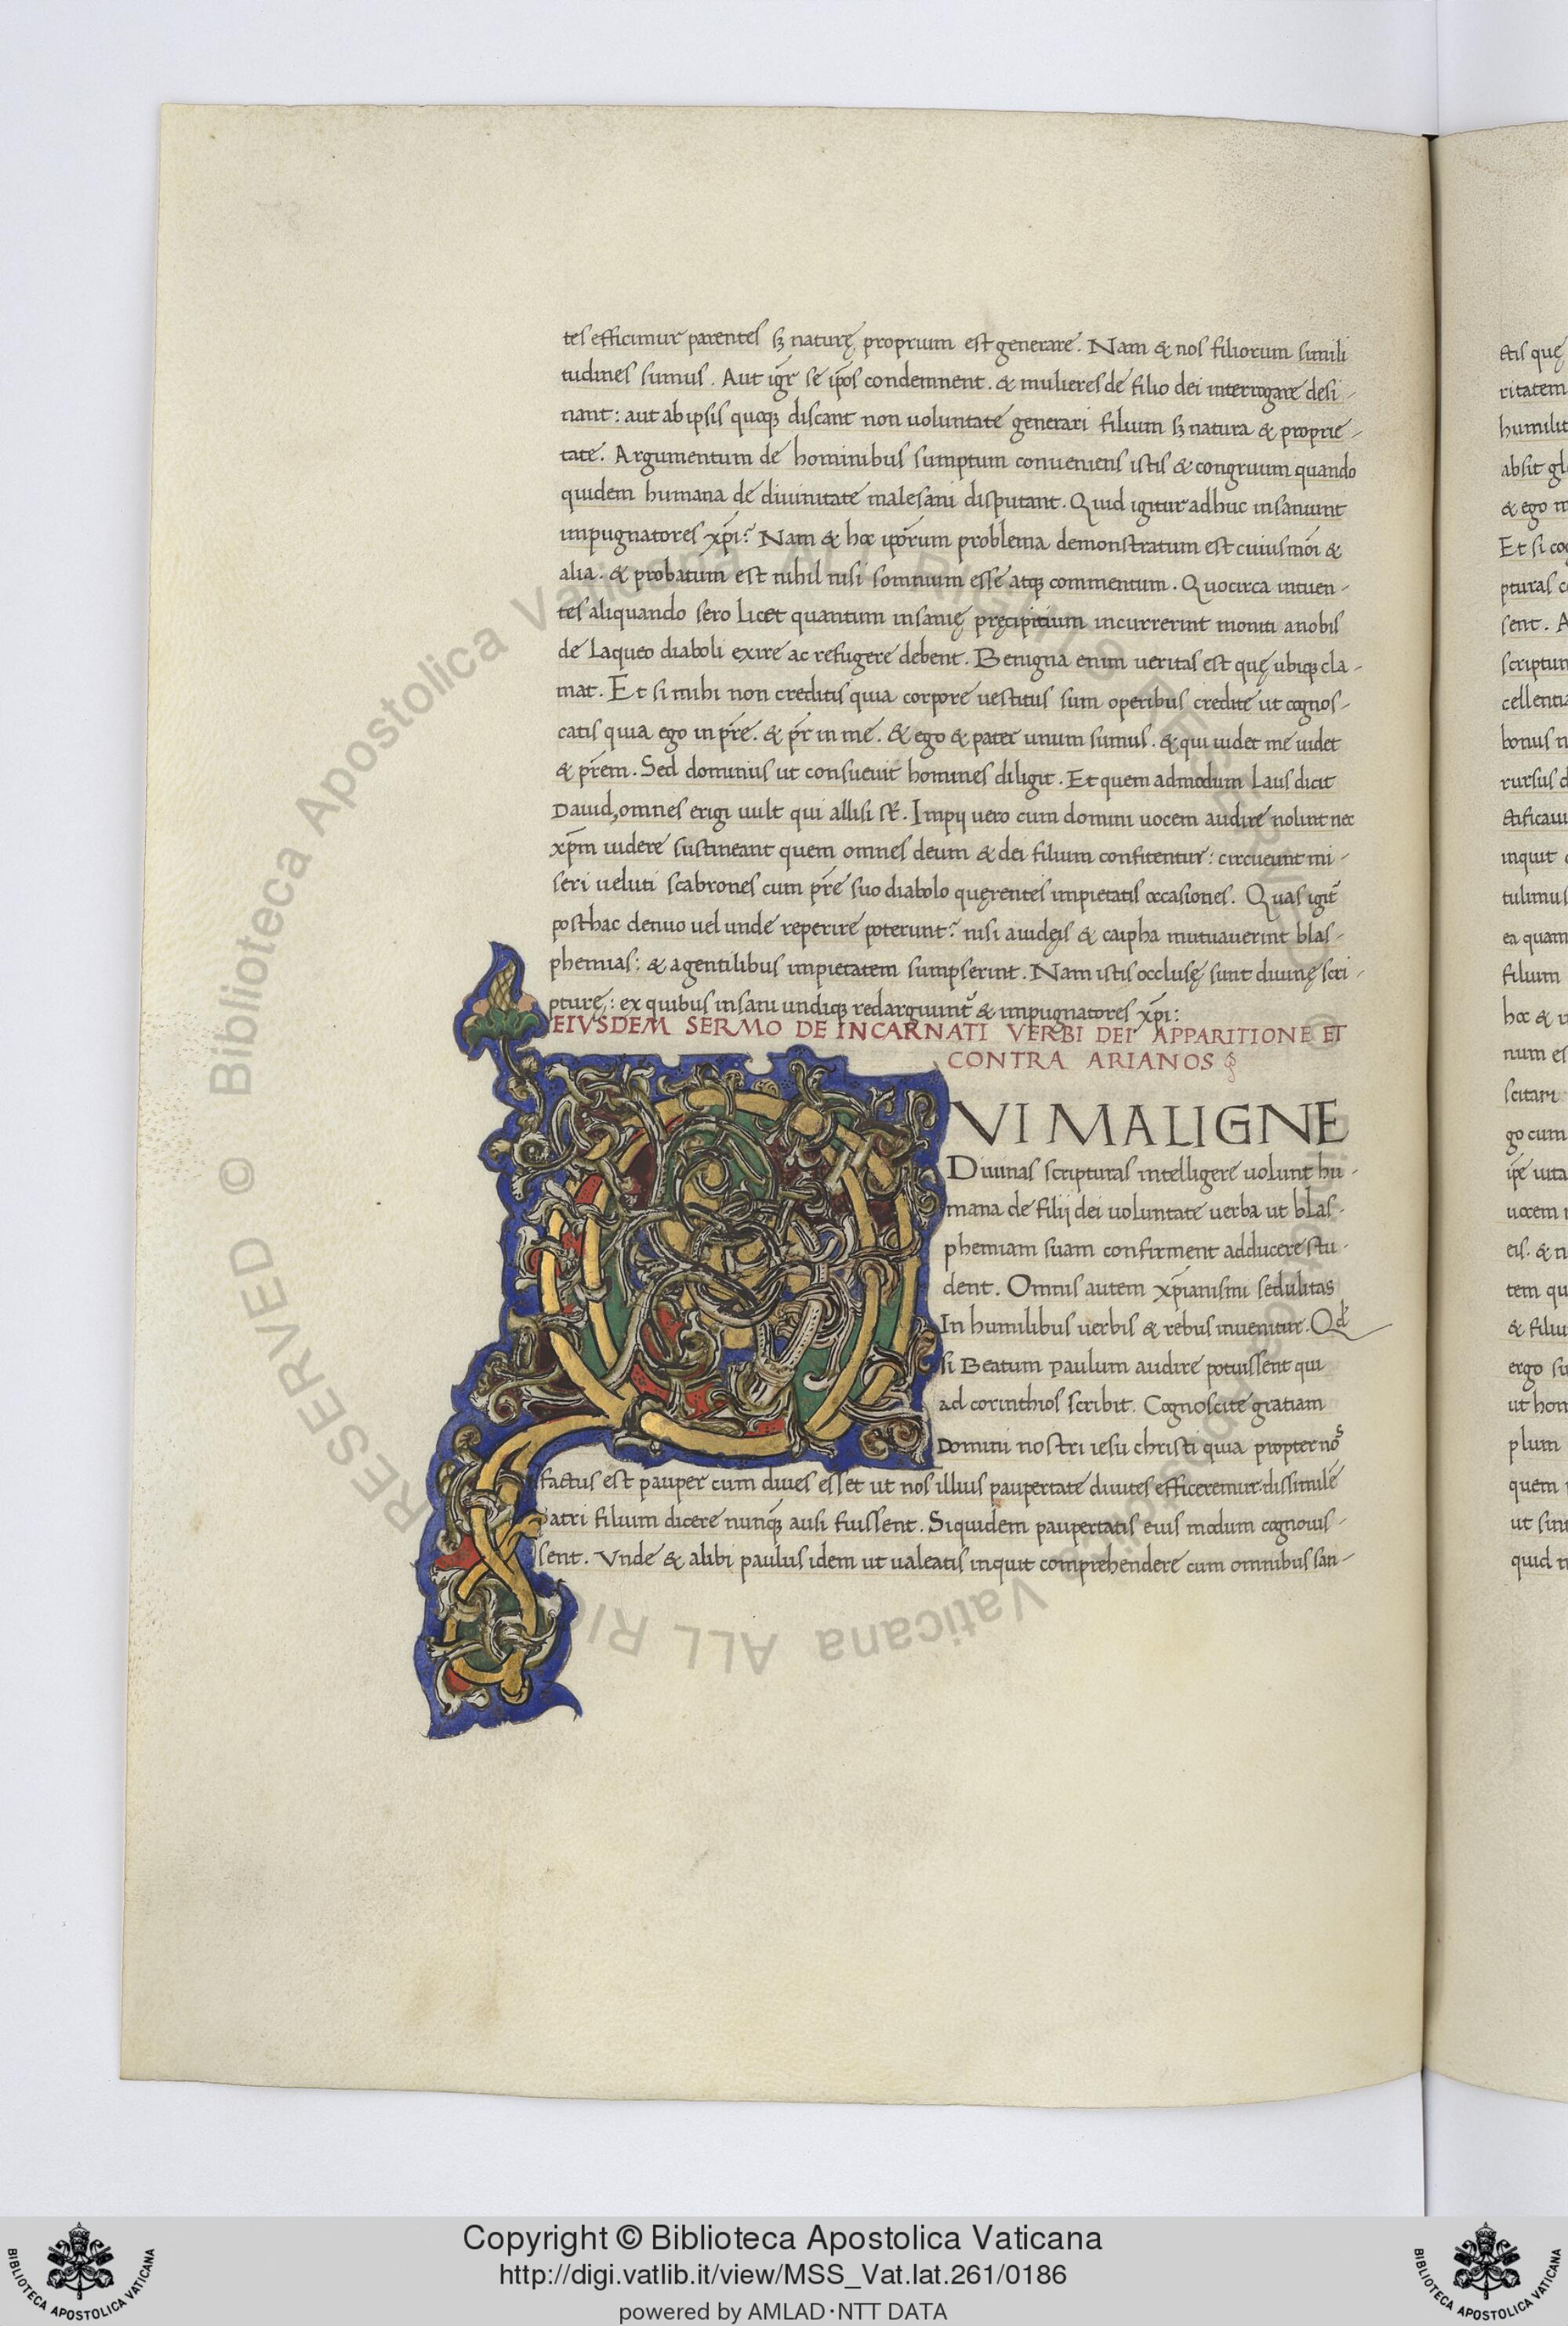 tes efficimur parentes sꝫ naturę proprium est generare. Nam & nos filiorum simili
tudines sumus. Aut igr̄ se ip̄os condemnent. & mulieres de filio dei interrogare desi-
nant: aut ab ipsis quoqꝫ discant non uoluntate generari filium sꝫ natura & proprie-
tate. Argumentum de hominibus sumptum conueniens istis & congruum quando
quidem humana de diuinitate malesani disputant. Quid igitur adhuc insaniunt
impugnatores xp̄i? Nam & hoc ip̄orum problema demonstratum est cuiusmōi &
alia. & probatum est nihil nisi somnium esse atqꝫ commentum. Quocirca intuen-
tes aliquando sero licet quantum insanię pręcipitium incurrerint moniti a nobis
de laqueo diaboli exire ac refugere debent. Benigna enim ueritas est quę ubiqꝫ cla-
mat. Et si mihi non creditis quia corpore uestitus sum operibus credite ut cognos-
catis quia ego in pr̄e. & pr̄ in me. & ego & pater unum sumus. & qui uidet me uidet
& pr̄em. Sed dominus ut consueuit homines diligit. Et quem admodum laus dicit
Dauid, omnes erigi uult qui allisi st̄. Impij uero cum domini uocem audire nolint nec
xp̄m uidere sustineant quem omnes deum & dei filium confitentur: circueunt mi-
seri ueluti scabrones cum pr̄e suo diabolo quęrentes impietatis occasiones. Quas igit̄
posthac denuo uel unde reperire poterunt? nisi a iudęis & caipha mutuauerint blas-
phemias: & a gentilibus impietatem sumpserint. Nam istis occlusę sunt diuinę scri-
pturę: ex quibus insani undiqꝫ redarguunt̄ & impugnatores xp̄i:
EIVSDEM SERMO DE INCARNATI VERBI DEI APPARITIONE ET
CONTRA ARIANOS
QVI MALIGNE
Diuinas scripturas intelligere uolunt hu-
mana de filij dei uoluntate uerba ut blas-
phemiam suam confirment adducere stu-
dent. Omnis autem xp̄ianismi sedulitas
In humilibus uerbis & rebus inuenitur. Qd̄
si Beatum Paulum audire potuissent qui
ad corinthios scribit. Cognoscite gratiam
Domini nostri iesu christi quia propter nos
factus est pauper cum diues esset ut nos illius paupertate diuites efficeremur. dissimile
Patri filium dicere nunqꝫ ausi fuissent. Siquidem paupertatis eius modum cognouis-
sent. Vnde & alibi paulus idem ut ualeatis inquit comprehendere cum omnibus san-
etis quę
ritatem
humilit
absit gl
& ego
Et si co
pturas
sent. A
scriptur
cellentia
bonus
rursus
inquit
tulimus
ea quam
filium
hoc &
num es
scitari
go cum
ip̄e uita
uocem
eis. &
tem qu
& filiu
ergo su
ut hom
plum
quem
ut sint
quid
© Biblioteca Apostolica Vaticana ALL RIGHTS RESERVED
Copyright © Biblioteca Apostolica Vaticana
http://digi.vatlib.it/view/MSS_Vat.lat.261/0186
powered by AMLAD·NTT DATA
BIBLIOTECA APOSTOLICA VATICANA
BIBLIOTECA APOSTOLICA VATICANA